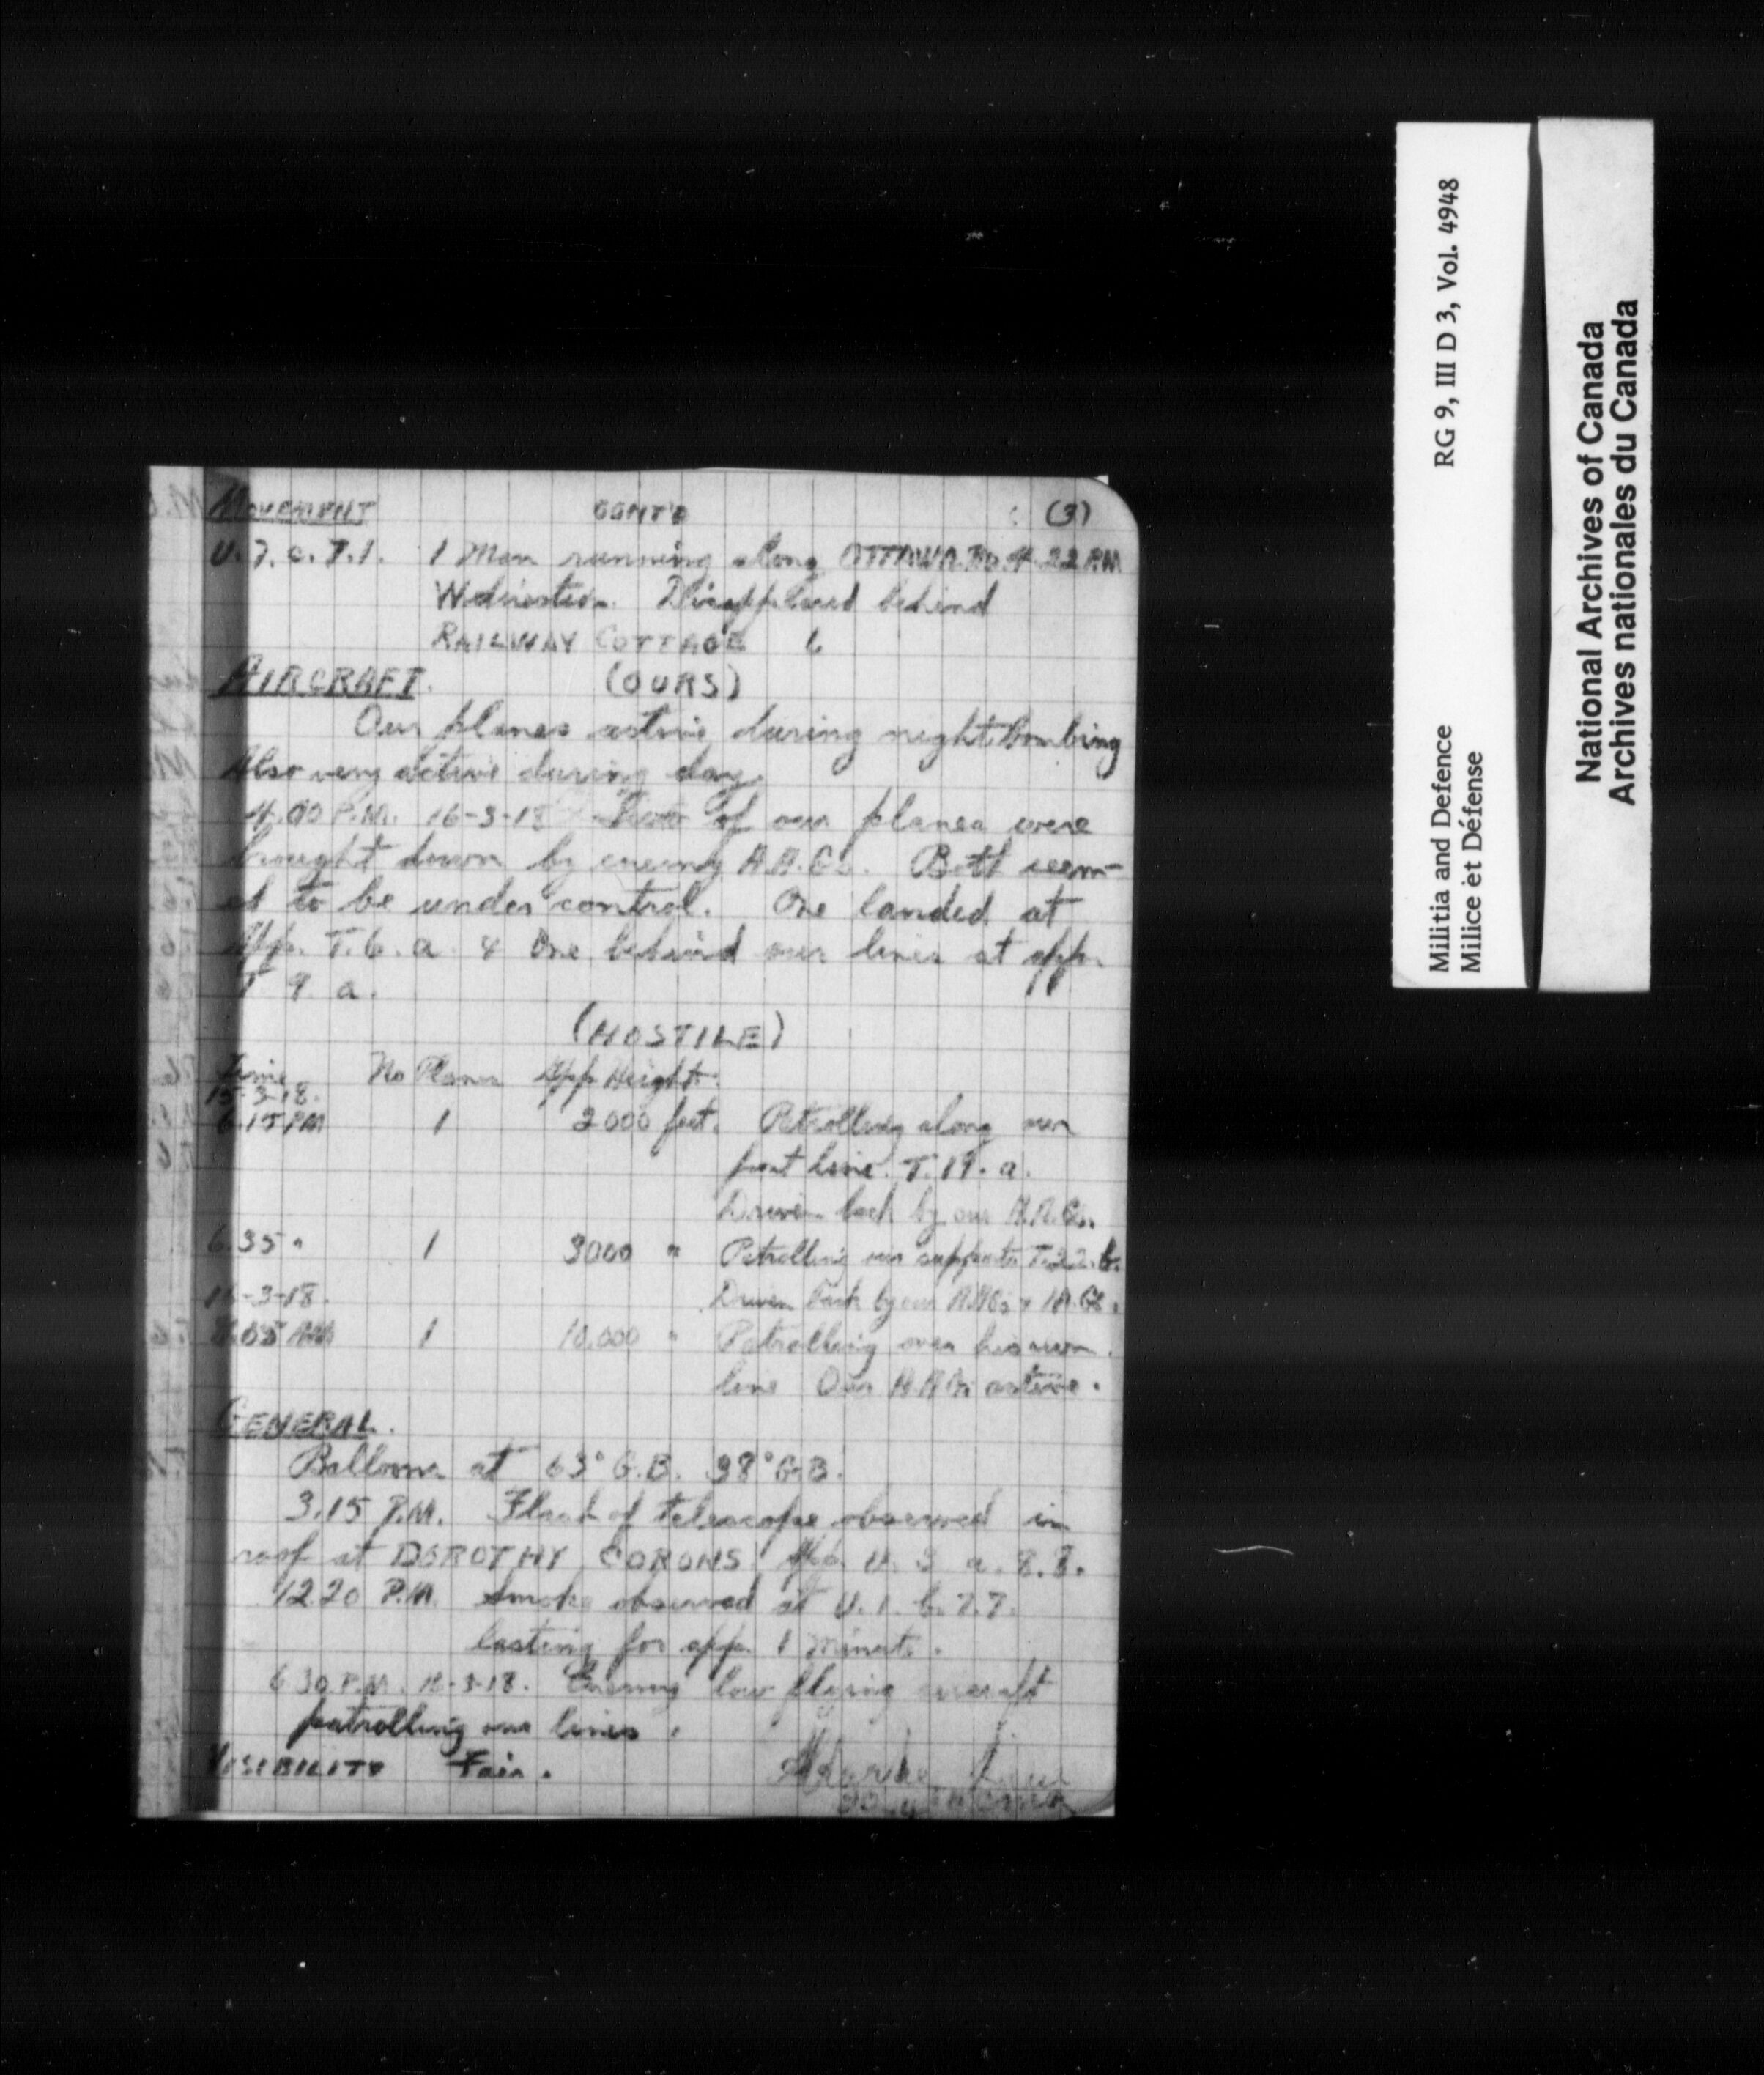 MOVEMENT CONT'D (3)
U.7.c.7.1. 1 Man running along OTTAWA RD. 4.22 PM
W direction. Disappeared behind
RAILWAY COTTAGE 6
AIRCRAFT. (OURS)
Our planes active during night Bombing
Also very active during day.
4.00 P.M. 16-3-18 Two of our planes were
brought down by enemy A.A.Gs. Both seem-
ed to be under control. One landed at
App. T.6.a. & One behind our lines at app.
T 9. a.
(HOSTILE)
Time No Planes App Height.
15-3-18.
6.15 PM 1 2000 feet. Patrolling along our
front line. T.19.a.
Driven back by our A.A.Gs.
6.35 " 1 3000 " Patrolling our supports T.22.b.
16-3-18. Driven back by our A.A.Gs & M.Gs.
8.05 AM 1 10,000 " Patrolling over his own
line Our A.A.Gs active.
GENERAL.
Balloons at 63° G.B. 98° G.B.
3.15 P.M. Flash of telescope observed in
roof at DOROTHY CORONS. App. U. 3 a. 8.8.
12.20 P.M. Smoke observed at U.1.b.7.7.
lasting for app. 1 Minute.
6 30 P.M. 16-3-18. Enemy low flying aircraft
patrolling our lines.
VISIBILITY Fair.
RG 9, III D 3, Vol. 4948
Militia and Defence
Milice et Défense
National Archives of Canada
Archives nationales du Canada